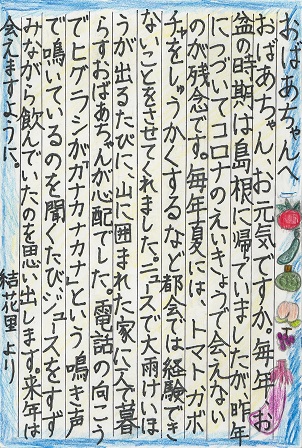 おばあちゃんへ
おばあちゃん、お元気ですか。毎年、お
盆の時期は島根に帰っていましたが、昨年
につづいてコロナのえいきょうで会えない
のが残念です。毎年夏には、トマト、カボ
チャをしゅうかくするなど都会では経験でき
ないことをさせてくれました。ニュースで大雨けいほ
うが出るたびに、山に囲まれた家に一人で暮
らすおばあちゃんが心配でした。電話の向こう
でヒグラシが「カナカナカナ」という鳴き声
で鳴いているのを聞くたびジュースをすず
みながら飲んでいたのを思い出します。来年は
会えますように。
結花里より